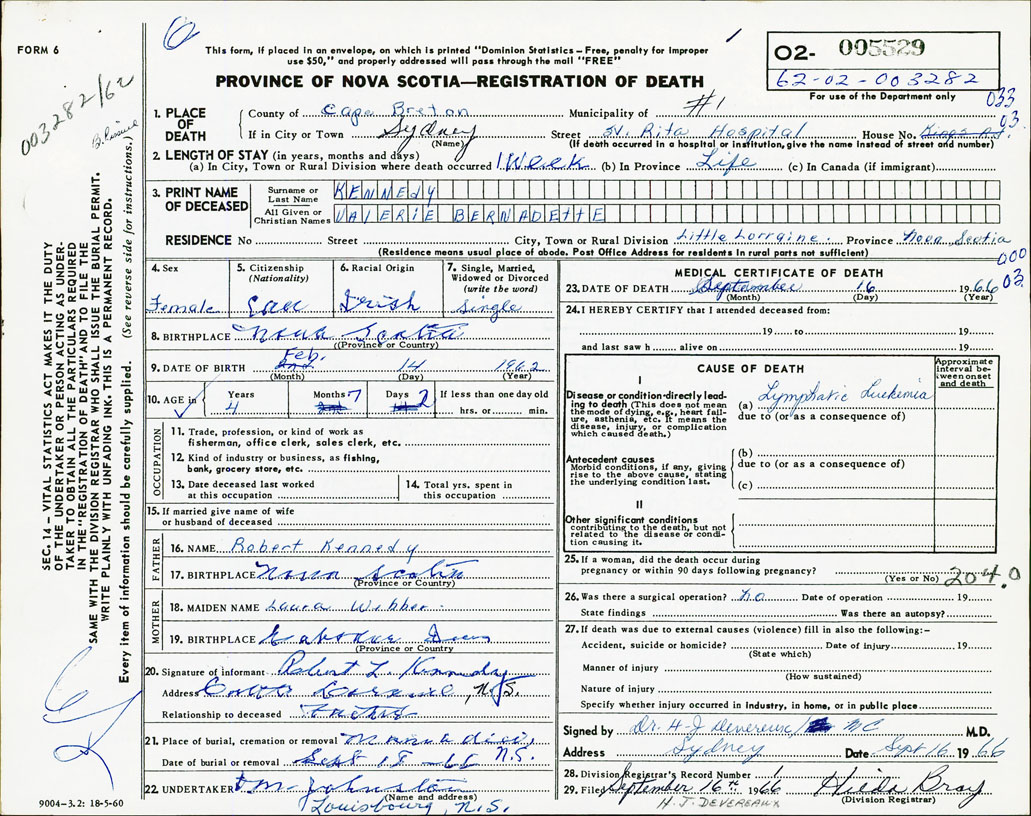 FORM 6
This form, if placed in an envelope, on which is printed "Dominion Statistics – Free, penalty for improper
use $50," and properly addressed will pass through the mail "FREE"
PROVINCE OF NOVA SCOTIA—REGISTRATION OF DEATH
O2- 005529
62-02-003282
For use of the Department only
003282/62
033
03
1. PLACE OF DEATH
County of Cape Breton Municipality of #1
If in City or Town Sydney Street St. Rita Hospital House No. Kings Rd.
(Name) (If death occurred in a hospital or institution, give the name instead of street and number)
2. LENGTH OF STAY (in years, months and days)
(a) In City, Town or Rural Division where death occurred 1 Week (b) In Province Life (c) In Canada (if immigrant)
3. PRINT NAME OF DECEASED
Surname or Last Name KENNEDY
All Given or Christian Names VALERIE BERNADETTE
RESIDENCE No Street City, Town or Rural Division Little Lorraine. Province Nova Scotia
(Residence means usual place of abode. Post Office Address for residents in rural parts not sufficient)
000
03
4. Sex Female
5. Citizenship (Nationality) Can
6. Racial Origin Irish
7. Single, Married, Widowed or Divorced (write the word) Single
8. BIRTHPLACE Nova Scotia
(Province or Country)
9. DATE OF BIRTH Feb. 14 1962
(Month) (Day) (Year)
10. AGE in Years 4 Months 7 Days 2 If less than one day old hrs. or min.
OCCUPATION
11. Trade, profession, or kind of work as
fisherman, office clerk, sales clerk, etc.
12. Kind of industry or business, as fishing,
bank, grocery store, etc.
13. Date deceased last worked
at this occupation
14. Total yrs. spent in
this occupation
15. If married give name of wife
or husband of deceased
FATHER
16. NAME Robert Kennedy
17. BIRTHPLACE Nova Scotia
(Province or Country)
MOTHER
18. MAIDEN NAME Laura Webber
19. BIRTHPLACE
(Province or Country)
20. Signature of informant Robert L. Kennedy
Address Lorraine, N.S.
Relationship to deceased Father
21. Place of burial, cremation or removal Mainadieu, N.S.
Date of burial or removal Sept 18 – 66
22. UNDERTAKER Johnston
(Name and address)
Louisbourg, N.S.
9004–3.2: 18-5-60
SEC. 14 – VITAL STATISTICS ACT MAKES IT THE DUTY
OF THE UNDERTAKER OR PERSON ACTING AS UNDER-
TAKER TO OBTAIN ALL THE PARTICULARS REQUIRED
IN THE "REGISTRATION OF DEATH" AND TO FILE THE
SAME WITH THE DIVISION REGISTRAR WHO SHALL ISSUE THE BURIAL PERMIT.
WRITE PLAINLY WITH UNFADING INK. THIS IS A PERMANENT RECORD.
Every item of information should be carefully supplied. (See reverse side for instructions.)
MEDICAL CERTIFICATE OF DEATH
23. DATE OF DEATH September 16 1966
(Month) (Day) (Year)
24. I HEREBY CERTIFY that I attended deceased from:
19 to 19
and last saw h alive on 19
CAUSE OF DEATH
Approximate interval between onset and death
I
Disease or condition directly lead-
ing to death (This does not mean
the mode of dying, e.g., heart fail-
ure, asthenia, etc. It means the
disease, injury, or complication
which caused death.)
(a) Lymphatic Leukemia
due to (or as a consequence of)
Antecedent causes
Morbid conditions, if any, giving
rise to the above cause, stating
the underlying condition last.
(b)
due to (or as a consequence of)
(c)
II
Other significant conditions
contributing to the death, but not
related to the disease or condi-
tion causing it.
25. If a woman, did the death occur during
pregnancy or within 90 days following pregnancy?
(Yes or No) 204.0
26. Was there a surgical operation? No Date of operation 19
State findings Was there an autopsy?
27. If death was due to external causes (violence) fill in also the following:–
Accident, suicide or homicide? Date of injury 19
(State which)
Manner of injury
(How sustained)
Nature of injury
Specify whether injury occurred in industry, in home, or in public place
Signed by Dr. H-J Devereux M.D.
Address Sydney Date Sept 16 1966
28. Division Registrar's Record Number 1
29. Filed September 16th 1966 Hilda Bray
(Division Registrar)
H. J. DEVEREAUX